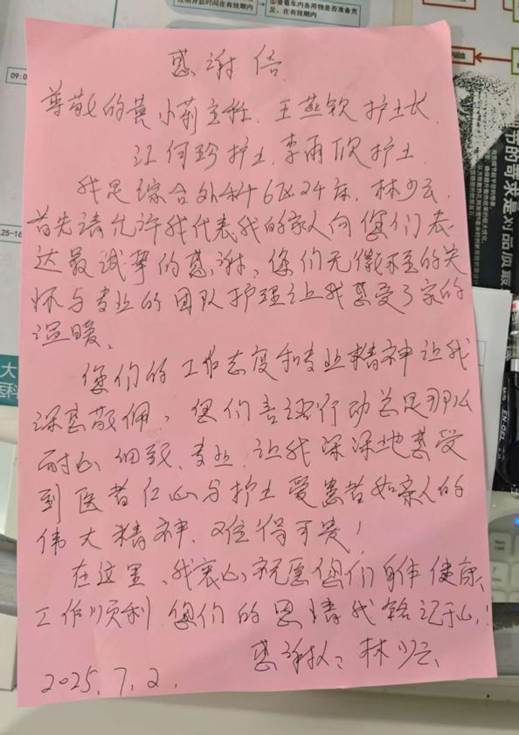 感谢信
尊敬的黄小莉主任、王燕钦护士长、
江何珍护士、李雨欣护士
我是综合外科6区24床,林少云,
首先请允许我代表我的家人向您们表
达最诚挚的感谢、您们无微不至的关
怀与专业的团队护理让我感受了家的
温暖、
您们的工作态度和专业精神让我
深感敬佩,您们言语行动总是那么
耐心、细致、专业、让我深深地感受
到医者仁心与护士爱患者如亲人的
伟大精神、难得可贵!
在这里、我衷心祝愿您们身体健康、
工作顺利 您们的恩情我铭记于心!
感谢人:林少云
2025.7.2.
09:0
25-16
大